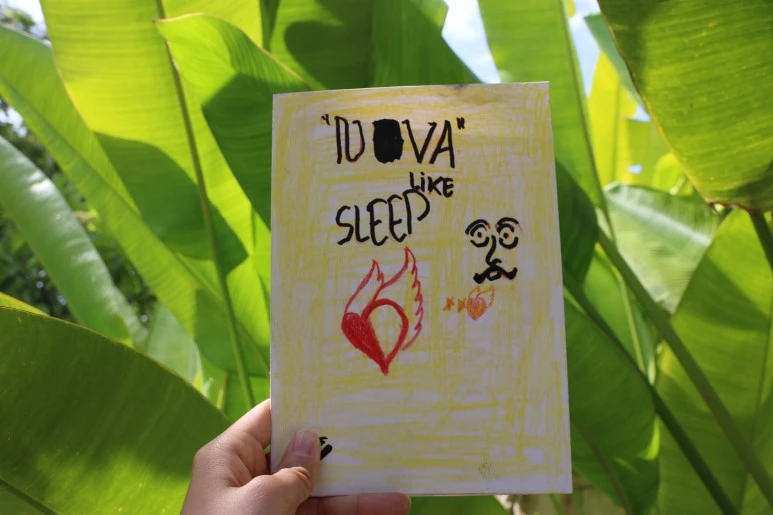 "NOVA"
LIKE
SLEEP